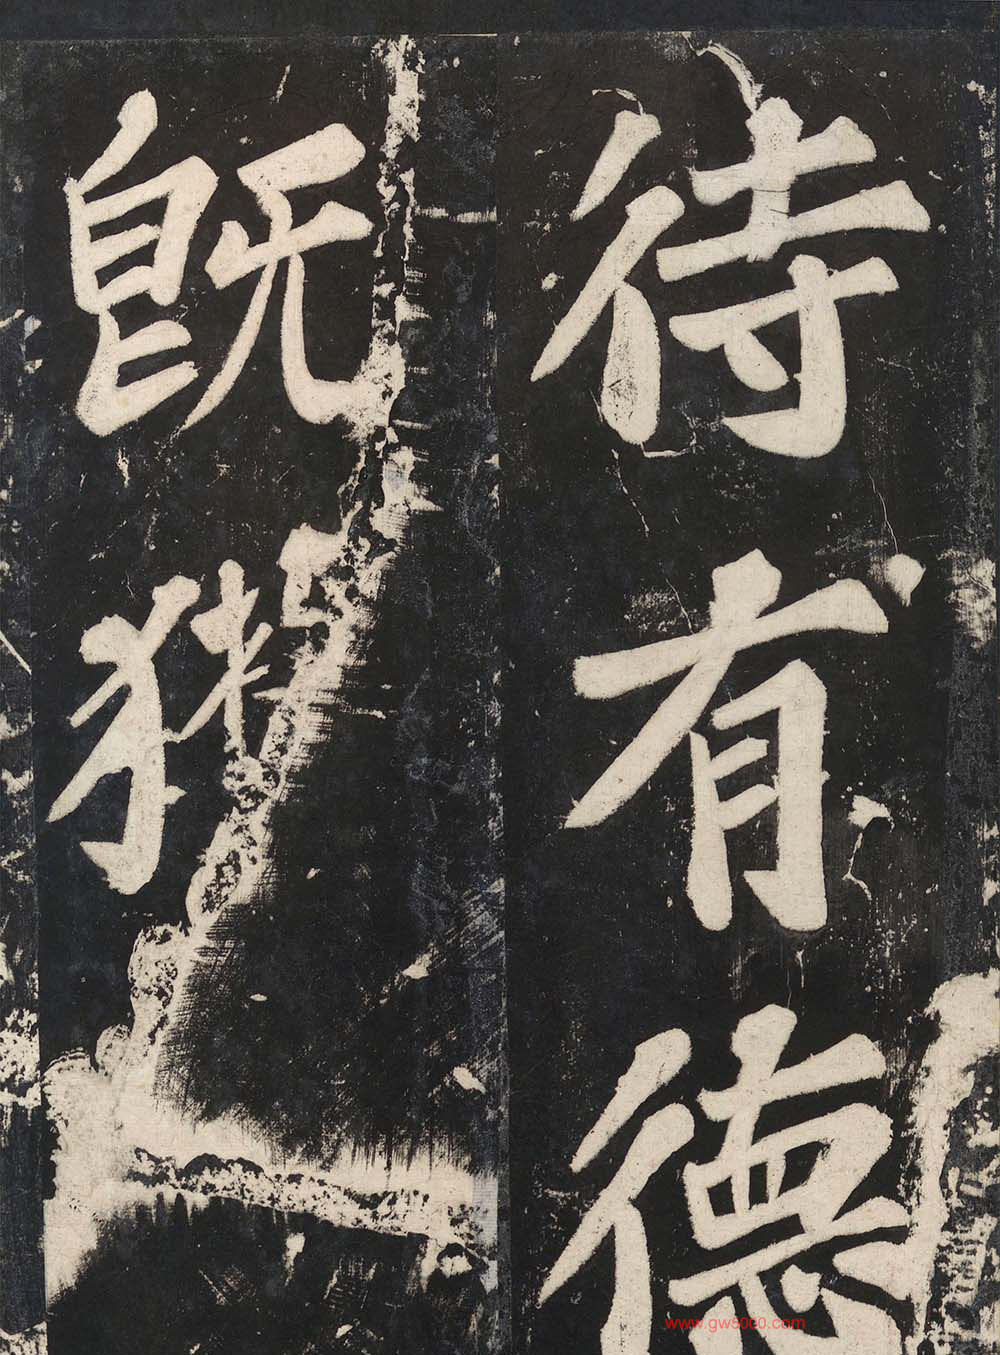 待有德
既獲
www.gw5000.com